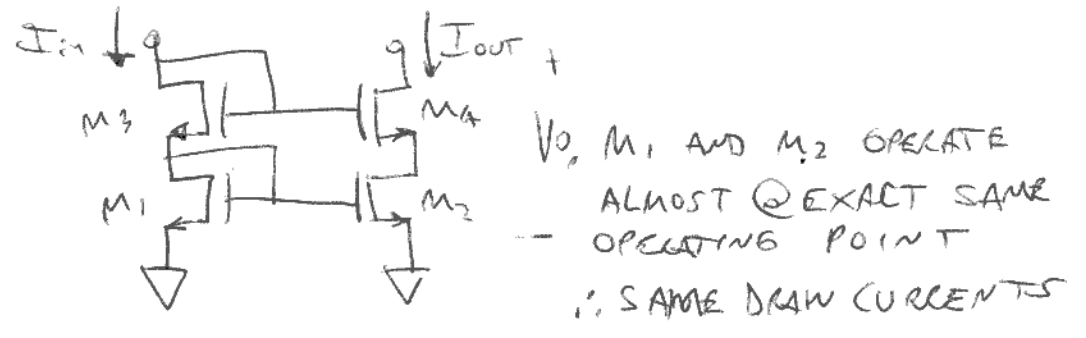 Iin
IOUT
+
M3
M4
Vo,
M1 AND M2 OPERATE
ALMOST @ EXACT SAME
M1
M2
- OPERATING POINT
∴ SAME DRAW CURRENTS